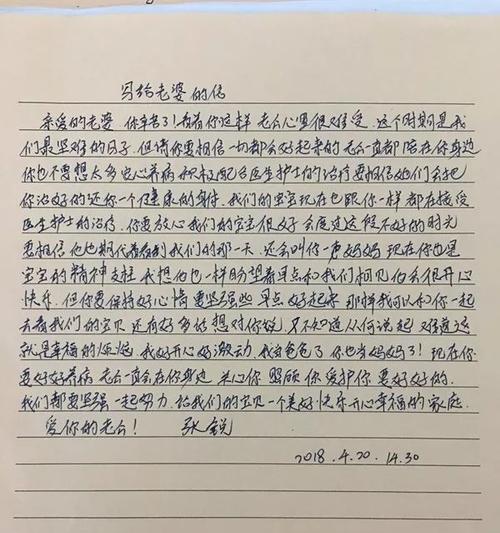 写给老婆的信
亲爱的老婆 你辛苦了!看着你这样 老公心里很难受 这个时期是我
们最坚难的日子.但请你要相信一切都会好起来的 老公一直都陪在你身边
你也不要想太多安心养病 积极配合医生护士的治疗要相信她们会把
你治好的还你一个健康的身体.我们的宝宝现在也跟你一样都在接受
医生护士的治疗.你要放心我们的宝宝很好 会度过这段不好的时光
要相信他也期代着看到我们的那一天.还会叫你一声妈妈 现在你也是
宝宝的精神支柱 我想他也一样盼望着早点和我们相见 他会很开心
快乐.但你要保持好心情 要坚强些 早点好起来 那样我可以和你一起
去看我们的宝贝 还有好多话想对你说 又不知道从何说起 难道这
就是幸福的烦恼.我好开心好激动.我当爸爸了 你也当妈妈了!现在你
要好好养病 老公一直会在你身边 关心你 照顾你 爱护你 要好好的.
我们都要坚强一起努力.给我们的宝贝一个美好快乐开心幸福的家庭.
爱你的老公! 张锐
2018.4.20.14.30